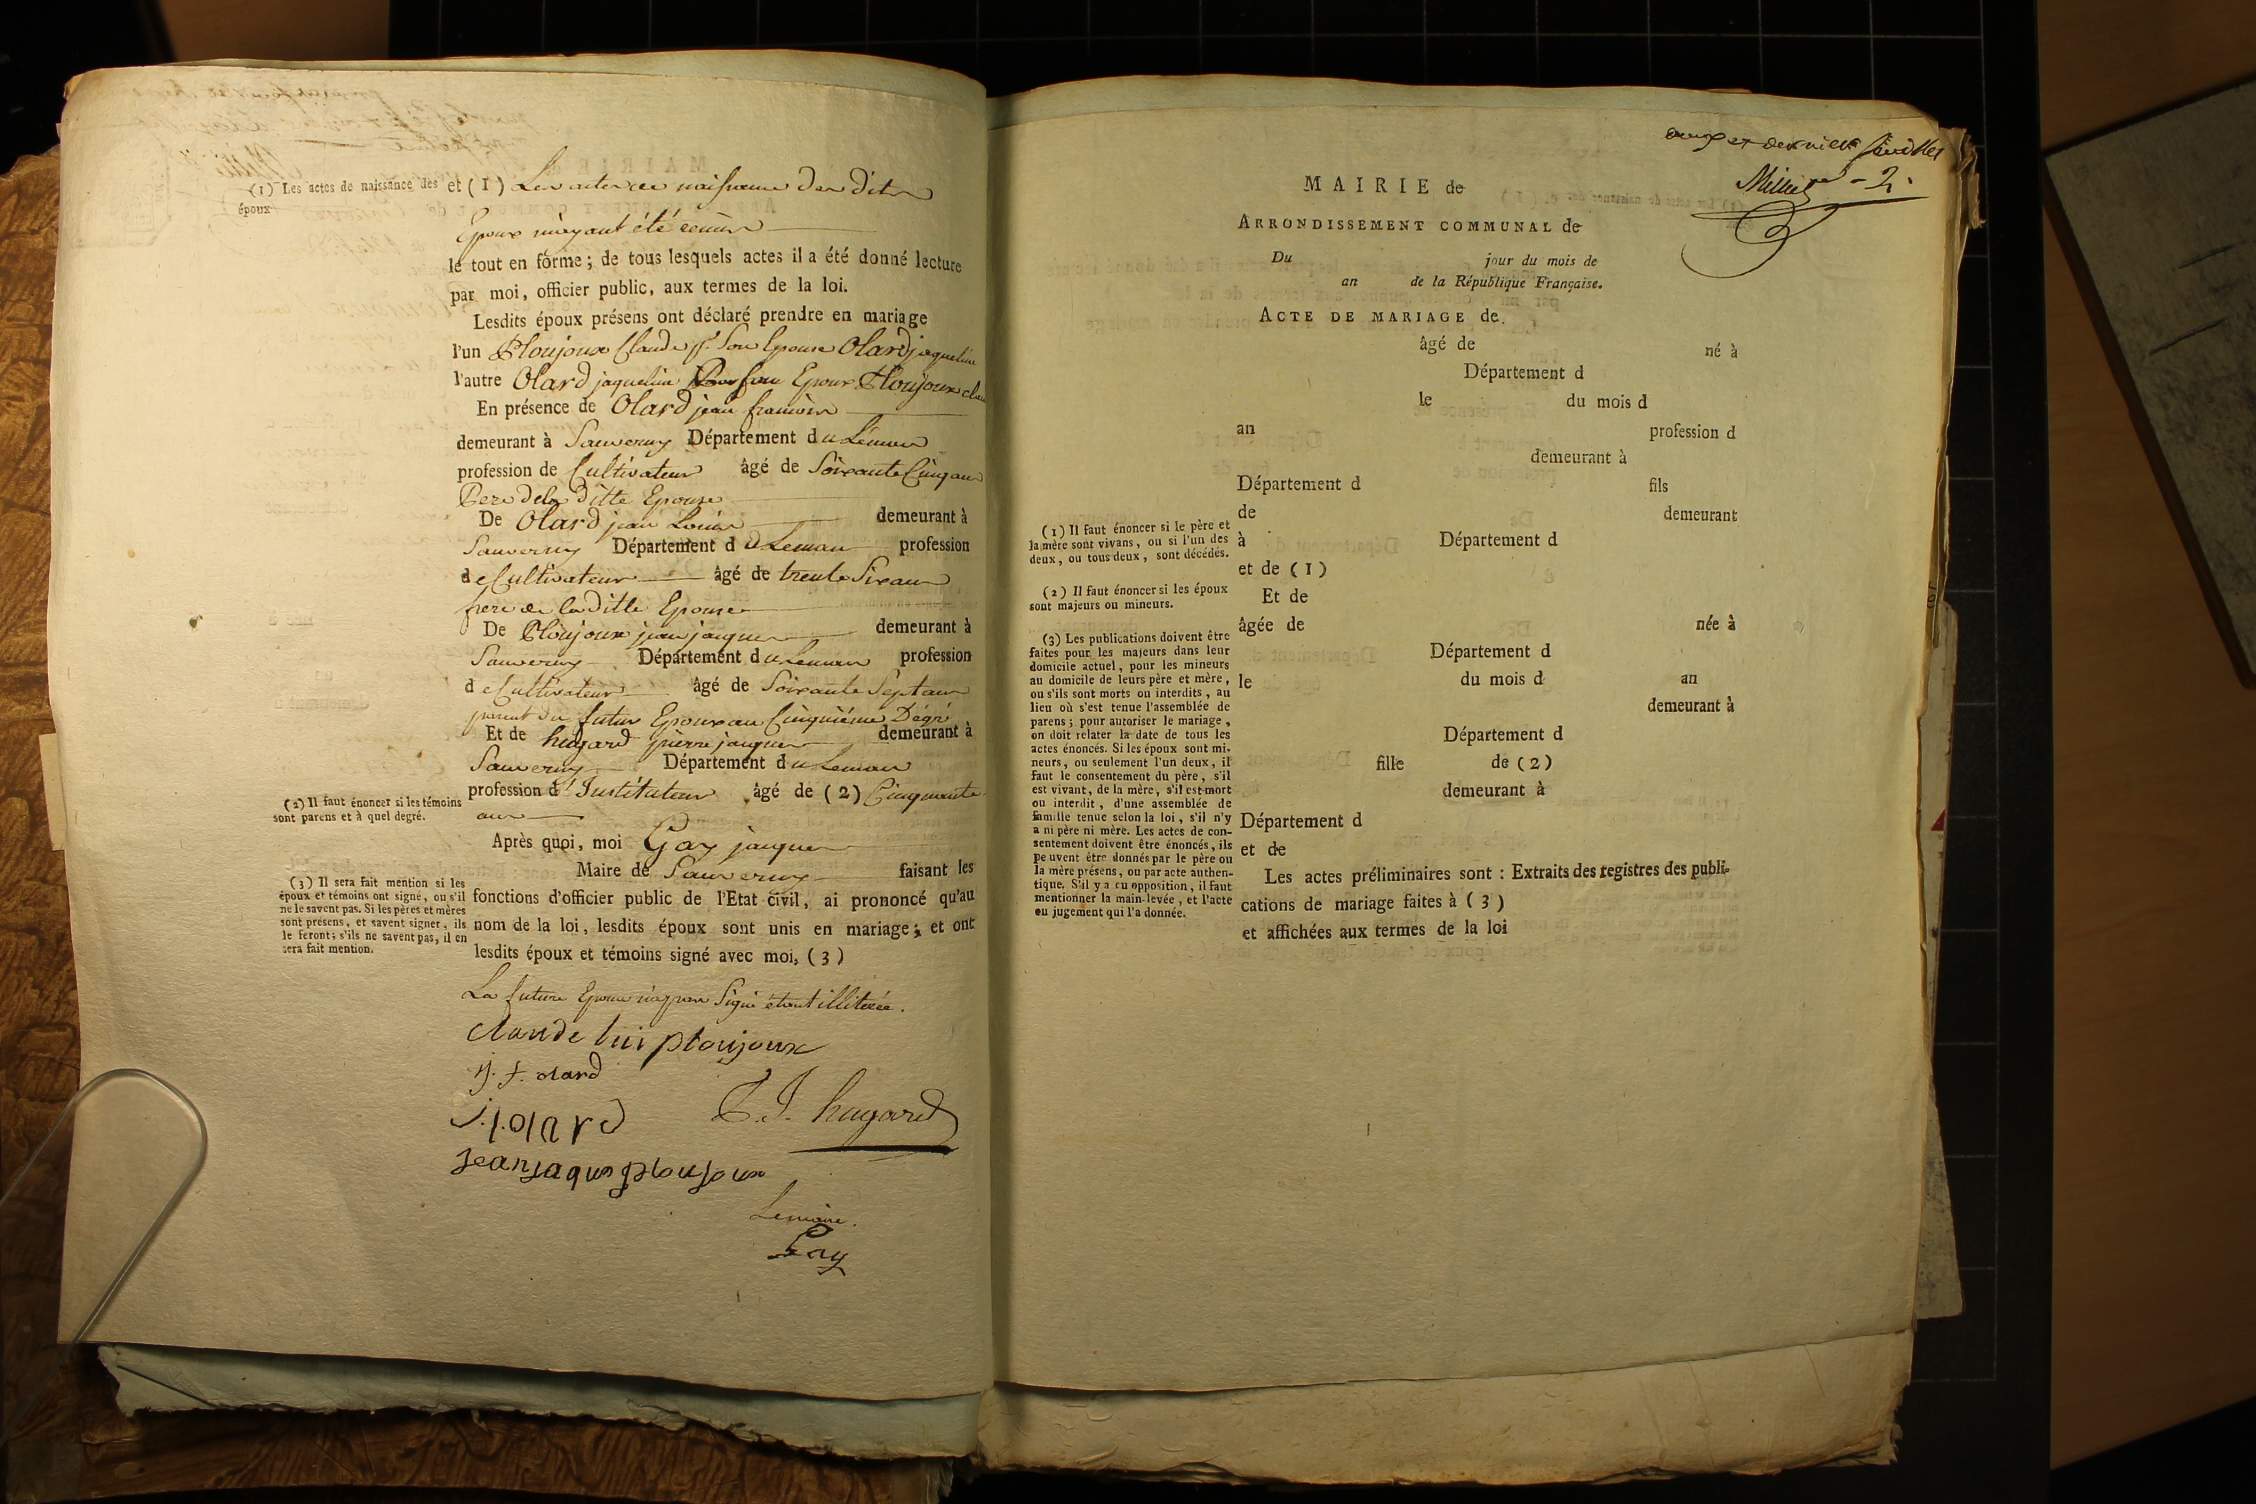 (1) Les actes de naissance des
époux
et (1) Les actes de naissance des dits
Epoux m'ayant été remis
le tout en forme; de tous lesquels actes il a été donné lecture
par moi, officier public, aux termes de la loi.
Lesdits époux présens ont déclaré prendre en mariage
l'un Ploujoux Claude pr. son Epouse Olard jaqueline
l'autre Olard jaqueline Pour son Epoux Ploujoux clau
En présence de Olard jean francois
demeurant à Sauverny Département du Léman
profession de Cultivateur âgé de Soixante Cinq ans
Pere de la ditte Epouse
De Olard jean Louis demeurant à
Sauverny Département d u Leman profession
de Cultivateur âgé de trente Six ans
frere de la ditte Epouse
De Ploujoux jean jaques demeurant à
Sauverny Département du Leman profession
de Cultivateur âgé de Soixante Sept ans
parent du futur Epoux au Cinquième Dégré
Et de hugard pierre jaques demeurant à
Sauverny Département du Leman
profession d'Instituteur âgé de (2) Cinquante
ans
(2) Il faut énoncer si les témoins
sont parens et à quel degré.
Après quoi, moi Gay jaques
Maire de Sauverny faisant les
fonctions d'officier public de l'Etat civil, ai prononcé qu'au
nom de la loi, lesdits époux sont unis en mariage; et ont
lesdits époux et témoins signé avec moi, (3)
(3) Il sera fait mention si les
époux et témoins ont signé, ou s'il
ne le savent pas. Si les pères et mères
sont présens, et savent signer, ils
le feront; s'ils ne savent pas, il en
sera fait mention.
La future Epouse n'a pas Signé étant illiterée.
claude lui ploujoux
j. f. olard
j. l. olard
P. J. hugard
jean jaques ploujoux
Lemaire.
Gay
onze et dernier feuillet
Milliet
MAIRIE de
ARRONDISSEMENT COMMUNAL de
Du jour du mois de
an de la République Française.
ACTE DE MARIAGE de
âgé de né à
Département d
le du mois d
an profession d
demeurant à
Département d fils
de demeurant
à Département d
et de (1)
Et de
âgée de née à
Département d
le du mois d an
demeurant à
Département d
fille de (2)
demeurant à
Département d
et de
Les actes préliminaires sont : Extraits des registres des publi-
cations de mariage faites à (3)
et affichées aux termes de la loi
(1) Il faut énoncer si le père et
la mère sont vivans, ou si l'un des
deux, ou tous deux, sont décédés.
(2) Il faut énoncer si les époux
sont majeurs ou mineurs.
(3) Les publications doivent être
faites pour les majeurs dans leur
domicile actuel, pour les mineurs
au domicile de leurs père et mère,
ou s'ils sont morts ou interdits, au
lieu où s'est tenue l'assemblée de
parens; pour autoriser le mariage,
on doit relater la date de tous les
actes énoncés. Si les époux sont mi-
neurs, ou seulement l'un deux, il
faut le consentement du père, s'il
est vivant, de la mère, s'il est mort
ou interdit, d'une assemblée de
famille tenue selon la loi, s'il n'y
a ni père ni mère. Les actes de con-
sentement doivent être énoncés, ils
peuvent être donnés par le père ou
la mère présens, ou par acte authen-
tique. S'il y a eu opposition, il faut
mentionner la main-levée, et l'acte
ou jugement qui l'a donnée.